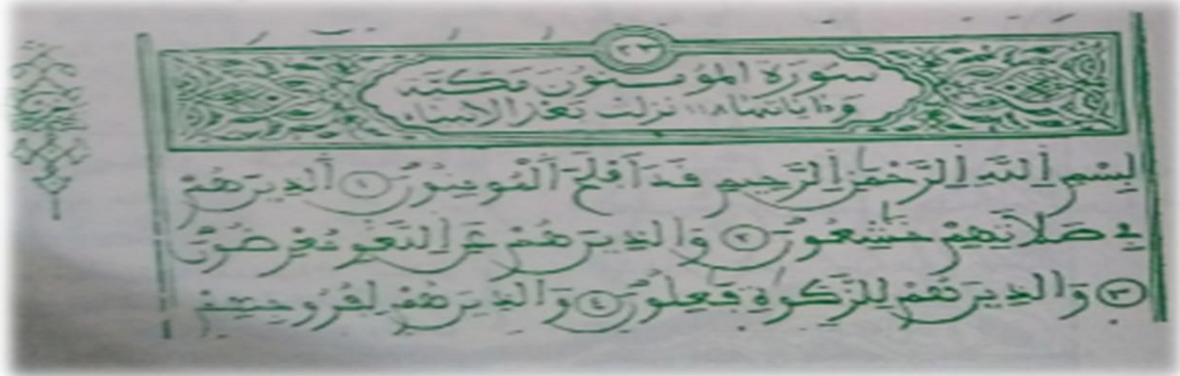 ٢٣
سُورَة المؤمنُون مَكيّة
وَءاياتها ١١٨ نزلت بَعْد الأنبياء
بِسْمِ اِللَّهِ اِلرَّحْمَٰنِ اِلرَّحِيمِ قَدَ اَفْلَحَ اَلْمُومِنُونَ ١ اَلذِينَ هُمْ
فِے صَلَاتِهِمْ خَٰشِعُونَ ٢ وَالذِينَ هُمْ عَنِ اِللَّغْوِ مُعْرِضُونَ
٣ وَالذِينَ هُمْ لِلزَّكَوٰةِ فَٰعِلُونَ ٤ وَالذِينَ هُمْ لِفُرُوجِهِمْ